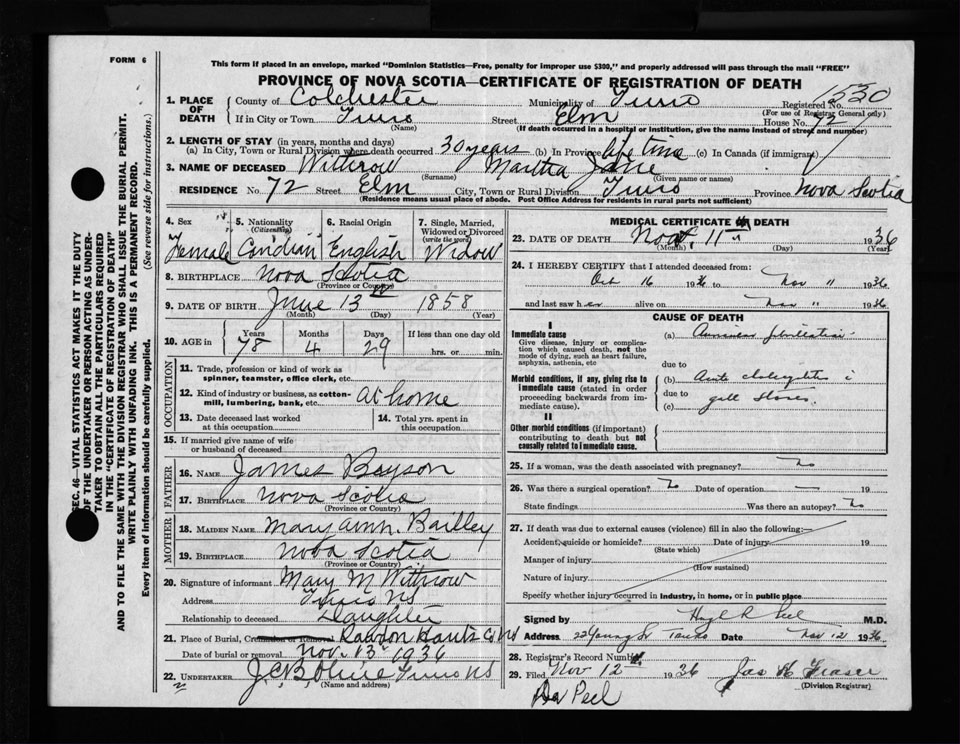 FORM 6
This form if placed in an envelope, marked "Dominion Statistics—Free, penalty for improper use $300," and properly addressed will pass through the mail "FREE"
PROVINCE OF NOVA SCOTIA—CERTIFICATE OF REGISTRATION OF DEATH
1. PLACE OF DEATH
County of Colchester Municipality of Truro Registered No. 1530
(For use of Registrar General only)
If in City or Town Truro Street Elm House No. 72
(Name) (If death occurred in a hospital or institution, give the name instead of street and number)
2. LENGTH OF STAY (in years, months and days)
(a) In City, Town or Rural Division where death occurred 30 years (b) In Province life time (c) In Canada (if immigrant)
3. NAME OF DECEASED Withrow Martha Jane
(Surname) (Given name or names)
RESIDENCE No. 72 Street Elm City, Town or Rural Division Truro Province Nova Scotia
(Residence means usual place of abode. Post Office Address for residents in rural parts not sufficient)
4. Sex 5. Nationality (Citizenship) 6. Racial Origin 7. Single, Married, Widowed or Divorced (write the word)
Female Canidian English Widow
8. BIRTHPLACE Nova Scotia
(Province or Country)
9. DATE OF BIRTH June 13 1858
(Month) (Day) (Year)
10. AGE in Years Months Days If less than one day old
78 4 29 hrs. or min.
OCCUPATION
11. Trade, profession or kind of work as spinner, teamster, office clerk, etc.
12. Kind of industry or business, as cotton-mill, lumbering, bank, etc. at home
13. Date deceased last worked at this occupation 14. Total yrs. spent in this occupation
15. If married give name of wife or husband of deceased
FATHER
16. NAME James Bayson
17. BIRTHPLACE Nova Scotia
(Province or Country)
MOTHER
18. MAIDEN NAME Mary Ann Bailley
19. BIRTHPLACE Nova Scotia
(Province or Country)
20. Signature of informant Mary M Withrow
Address Truro NS
Relationship to deceased Daughter
21. Place of Burial, Cremation or Removal Rawdon Hants Co NS
Date of burial or removal Nov. 13 1936
22. UNDERTAKER Truro NS
(Name and address)
MEDICAL CERTIFICATE OF DEATH
23. DATE OF DEATH Nov. 11 1936
(Month) (Day)
24. I HEREBY CERTIFY that I attended deceased from:
Oct 16 1936 to Nov 11 1936
and last saw her alive on Nov 11 1936
CAUSE OF DEATH
I
Immediate cause
Give disease, injury or complication which caused death, not the mode of dying, such as heart failure, asphyxia, asthenia, etc
(a)
due to
Morbid conditions, if any, giving rise to immediate cause (stated in order proceeding backwards from immediate cause).
(b)
due to
(c) gall stones
II
Other morbid conditions (if important) contributing to death but not causally related to immediate cause.
25. If a woman, was the death associated with pregnancy? No
26. Was there a surgical operation? No Date of operation — 19
State findings Was there an autopsy? No
27. If death was due to external causes (violence) fill in also the following:—
Accident, suicide or homicide? Date of injury 19
(State which)
Manner of injury
(How sustained)
Nature of injury
Specify whether injury occurred in industry, in home, or in public place
Signed by Hugh R Peel M.D.
Address 22 Young St Truro Date Nov 12 1936
28. Registrar's Record Number
29. Filed Nov 12 1936 Jas Fraser
(Division Registrar)
Dr Peel
SEC. 46—VITAL STATISTICS ACT MAKES IT THE DUTY
OF THE UNDERTAKER OR PERSON ACTING AS UNDER-
TAKER TO OBTAIN ALL THE PARTICULARS REQUIRED
IN THE "CERTIFICATE OF REGISTRATION OF DEATH"
AND TO FILE THE SAME WITH THE DIVISION REGISTRAR WHO SHALL ISSUE THE BURIAL PERMIT.
WRITE PLAINLY WITH UNFADING INK. THIS IS A PERMANENT RECORD.
Every item of information should be carefully supplied. (See reverse side for instructions.)